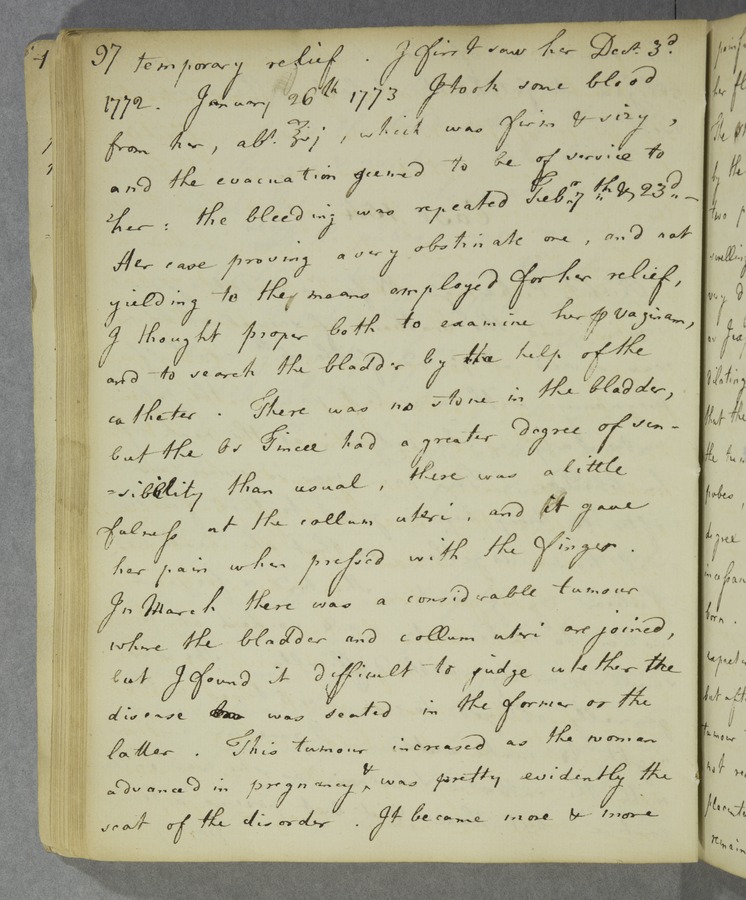 97 temporary relief. I first saw her Dec.r 3.d
1772. January 26th 1773 I took some blood
from her, ab.t ℥vj, which was firm & sizy,
and the evacuation seemed to be of service to
her: the bleeding was repeated Feb.y 7th & 23.d -
Her case proving a very obstinate one, and not
yielding to the means employed for her relief,
I thought proper both to examine her p vaginam,
and to search the bladder by the help of the
catheter. There was no stone in the bladder,
but the Os Tincæ had a greater degree of sen-
=sibility than usual, there was a little
fulness at the collum uteri, and it gave
her pain when pressed with the finger.
In March there was a considerable tumour
where the bladder and collum uteri are joined,
but I found it difficult to judge whether the
disease was seated in the former or the
latter. This tumour increased as the woman
advanced in pregnancy & was pretty evidently the
seat of the disorder. It became more & more